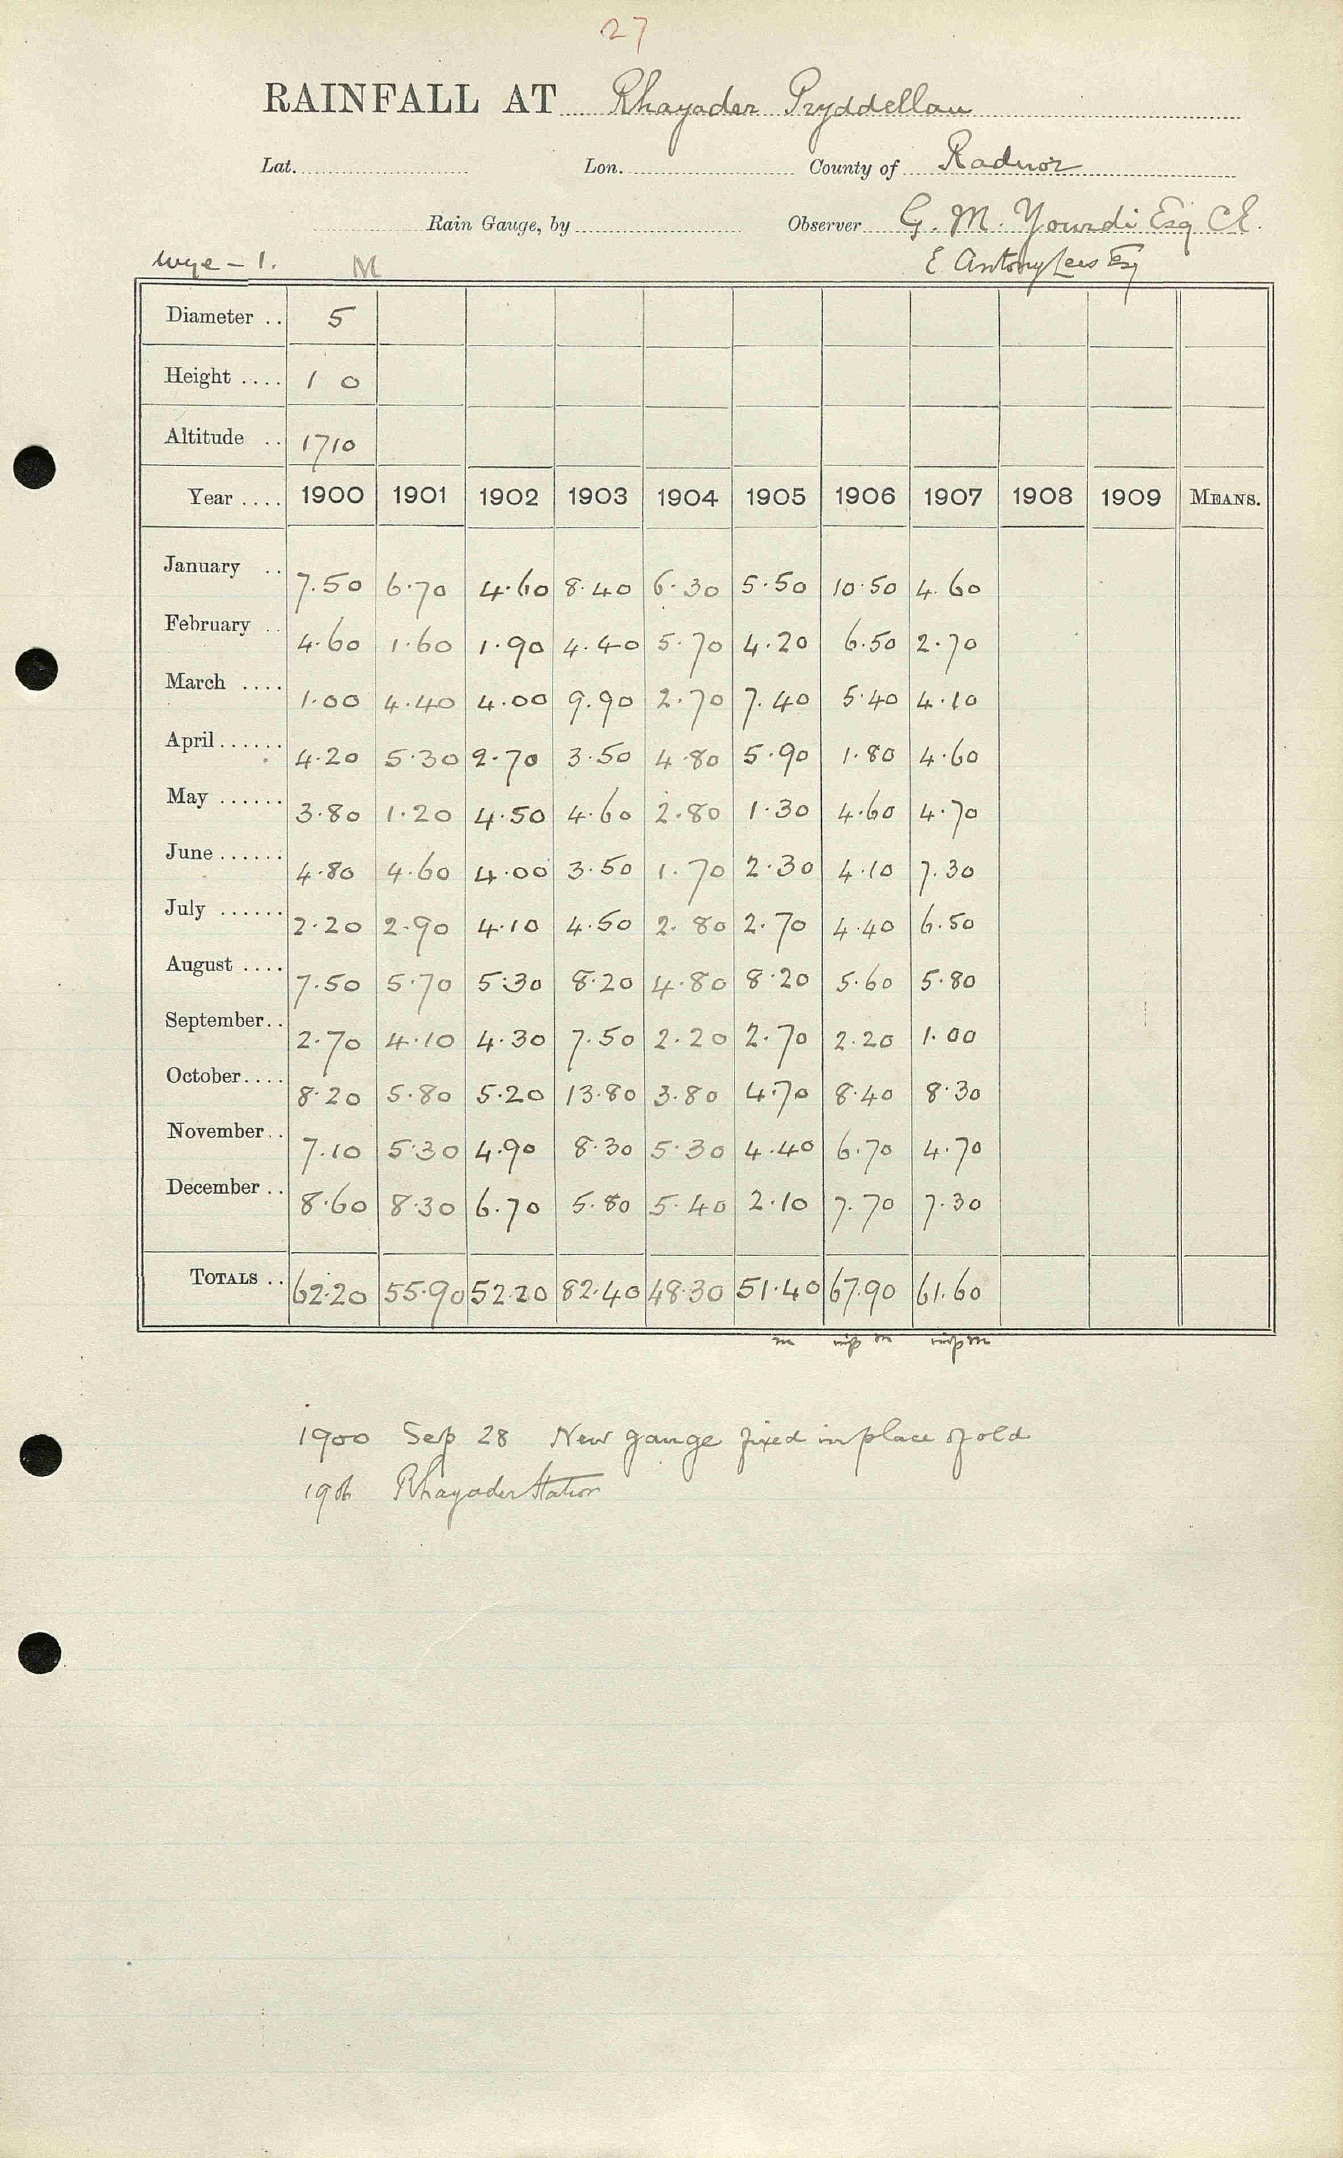 27
RAINFALL AT Rhayader Pryddellau
Lat. Lon. County of Radnor
Rain Gauge, by Observer G. M. Yourdi Esq C E.
Wye - 1. M E Antony Lees Esq
Diameter .. 5
Height .... 1 0
Altitude .. 1710
Year .... 1900 1901 1902 1903 1904 1905 1906 1907 1908 1909 MEANS.
January .. 7.50 6.70 4.60 8.40 6.30 5.50 10.50 4.60
February .. 4.60 1.60 1.90 4.40 5.70 4.20 6.50 2.70
March .... 1.00 4.40 4.00 9.90 2.70 7.40 5.40 4.10
April...... 4.20 5.30 2.70 3.50 4.80 5.90 1.80 4.60
May ...... 3.80 1.20 4.50 4.60 2.80 1.30 4.60 4.70
June...... 4.80 4.60 4.00 3.50 1.70 2.30 4.10 7.30
July ...... 2.20 2.90 4.10 4.50 2.80 2.70 4.40 6.50
August .... 7.50 5.70 5.30 8.20 4.80 8.20 5.60 5.80
September.. 2.70 4.10 4.30 7.50 2.20 2.70 2.20 1.00
October.... 8.20 5.80 5.20 13.80 3.80 4.70 8.40 8.30
November.. 7.10 5.30 4.90 8.30 5.30 4.40 6.70 4.70
December .. 8.60 8.30 6.70 5.80 5.40 2.10 7.70 7.30
TOTALS .. 62.20 55.90 52.20 82.40 48.30 51.40 67.90 61.60
m m m
1900 Sep 28 New gauge fixed in place of old
1906 Rhayader Station